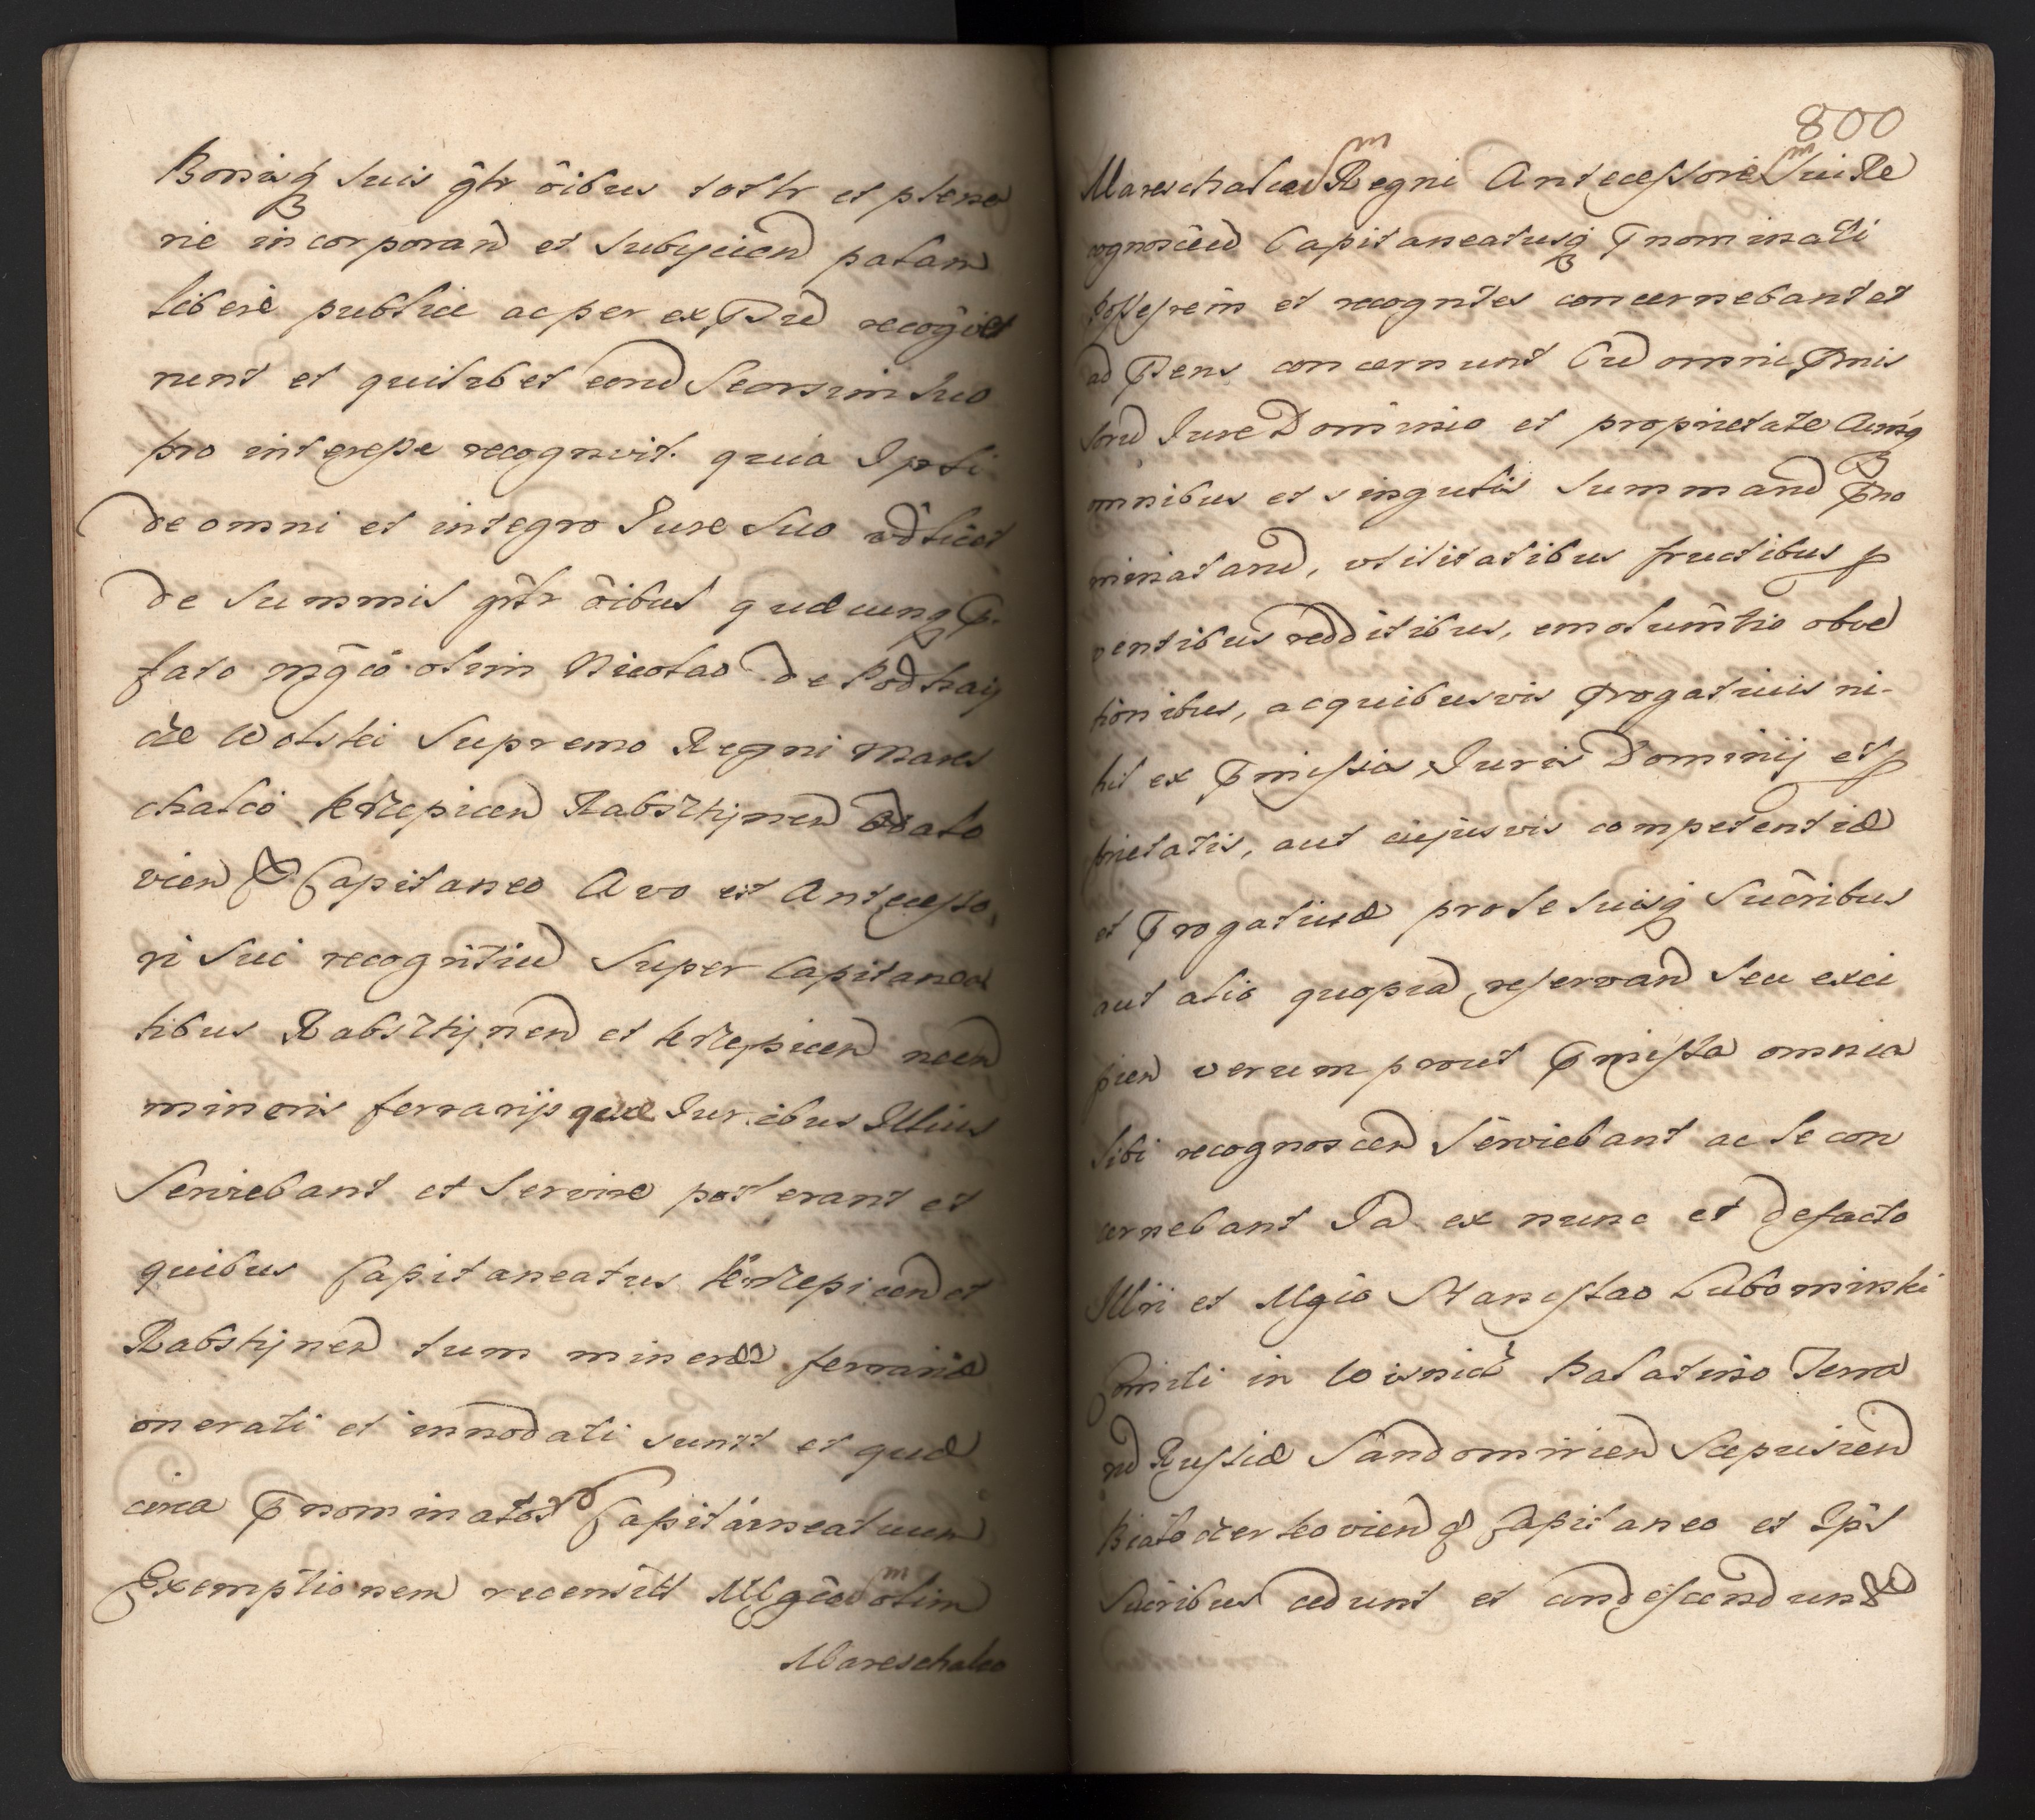 Bonisq suis gñr õibus totlr et plena
rie incorporand et subyciend palam
libere publice ac per exPsũ recogũt
nunt et quilibet eorũ Seorsim suo
pro interesse recognovit. quia Ipsi
de omni et integro Jure suo
de summis gñr õibus quæcunq P.
fato mgco olim Nicolao de Podhay
ce Wolski Supremo Regni Mares
chalco Krzepicen Rabsztynen
vicen & Capitaneo Avo et Antecesso
ri sui recognitiũ super Capitanea
tibus Rabsztynen et Krzepicen necn
mineris ferrarijs quæ Juribus Illius
Serviebant et servire poterant et
quibus Capitaneatus Krzepicen et
Rabstynen tum mineræ ferrariæ
onerati et innodati sunt et quæ
circa Pnominator Capitaneatuum
Exemptionem recensitũ Mgcum olim
Mareschalcu
800
Mareschalcum Regni Antecessorem sui Re
cognoscend Capitaneatusq Pnominati
possessrem et recogntes concernebant et
ad Psens concernunt Cũ omni Pmis
sorũ Jure Dominio et proprietate Acinsq
omnibus et singulis summarũ Pno
minatarũ, utilitatibus fructibus p
ventibus redditibus, emolumtis obve
tionibus, ac quibusvis Progativis ni-
hil ex Pmissis Juris Dominij et p
prietatis, aut cujusvis competentiæ
et Progativæ pro se suisq Sucribus
aut alio quopiã reservand seu exci
pien verum prout Pmissa omnia
sibi recognoscen Serviebant ac se con
cernebant Ia ex nunc et de facto
Illri et Mgco Stanislao Lubomirski
Comiti in Wisnicz Palatino Terra
rũ Russiæ Sandomirien Scepusien
Bialocerkovien & Capitaneo et Ips
Sucribus cedunt et condescendunt